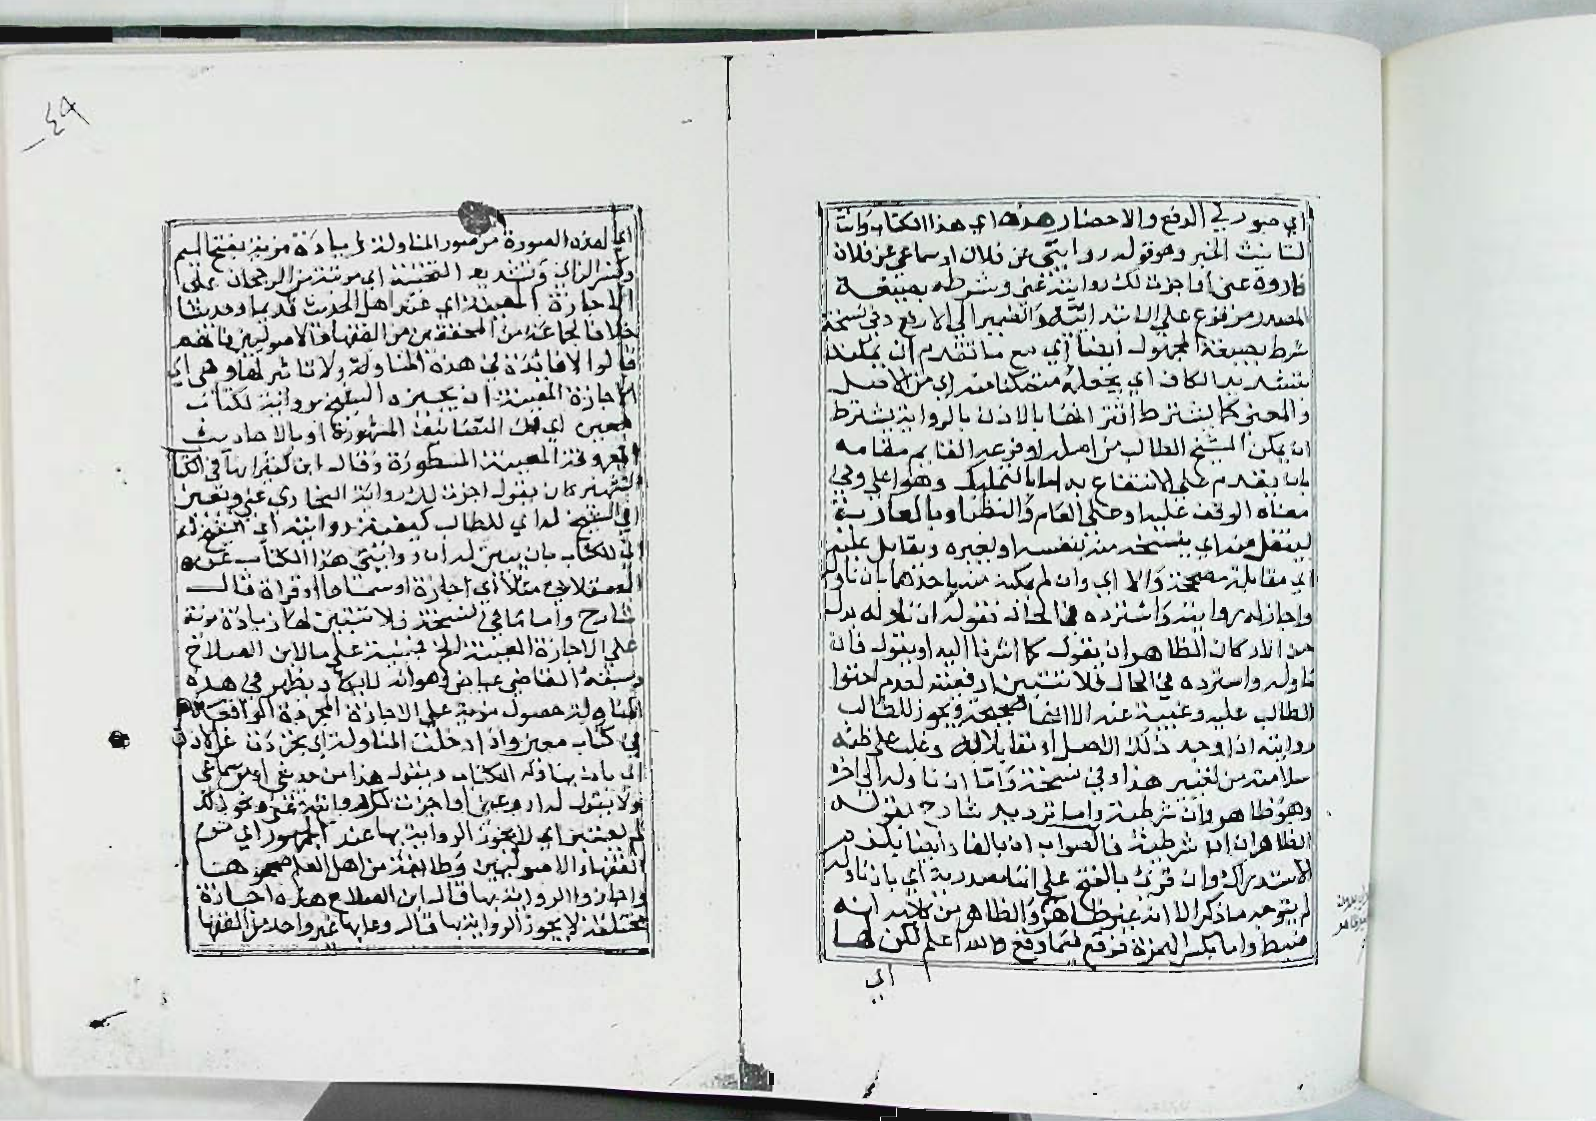 اي صورتي الدفع والاحضار هذه اي هذا الكتاب وانث
لتانيث الخبر وهو قوله روايتي عن فلان او سماعي عن فلان
فاروه عني او اجزت لك روايته عني وشرطه بصيغة
المصدر مرفوع علي الابتدائية والضمير الي الاربع وفي نسخة
شرط بصيغة المجهول ايضا اي مع ما تقدم ان يمكنه
بتشديد الكاف اي يجعله متمكنا منه اي من الاصل
والمعني كما يشترط اقترانها بالاذن بالرواية يشترط
ان يمكن الشيخ الطالب من اصله او فرعه القايم مقامه
بان يقدم علي الانتفاع به اما بالتمليك وهو اعلي وفي
معناه الوقف عليه او علي العام واما بالعارية
لينقل منه اي ينسخه منه بنفسه او بغيره ويقابل عليه
اي مقابلة مصححة والا اي وان لم يمكنه منه ياخذها بان ناوله
واجاز له روايته واسترده في الحال فقوله ان ناوله بدل
من الا وكان الظاهر ان يقول كما اشرنا اليه او يقول فان
ناوله واسترده في الحال فلا تتبين ارفعيته لعدم احتوا
الطالب عليه وغيبته عنه الا انها صحيحة ويجوز للطالب
روايته اذا وجد ذلك الاصل او مقابلا له وغلب علي ظنه
سلامته من تغيير هذا وفي نسخة واما ان ناوله الي اخره
وهو ظاهر وان شرطية واما ترديد شارح بقوله
الظاهر ان ان شرطية فالصواب ان بالفا وايضا يكفي
الاستدراك وان قرئ بالفتح علي انها مصدرية اي بان ناوله
لم يتوجه ما ذكر الا انه غير ظاهر والظاهر من انه
ضبط واما بكسر الهمزة فوقع فيما وقع والله اعلم لكن لها
اي
٤٩
اي لهذه الصورة من صور المناولة زيادة مزية بفتح الميم
وكسر الزاي وتشديد التحتية اي مرتبة من الرجحان علي
الاجازة المعينة اي عند اهل الحديث قديما وحديثا
خلافا لجماعة من المحققين من الفقها والاصوليين فانهم
قالوا لا فائدة في هذه المناولة ولا تاثير لها وهي اي
الاجازة المعينة ان يجيزه الشيخ برواية كتاب
معين اي من التصانيف المشهورة او بالاحاديث
المعروفة المعينة المسطورة وقال ابن كثير انها في الكتاب
الشهير كان يقول اجزت لك رواية البخاري عني ويعين
اي الشيخ له اي للطالب كيفية روايته اي الشيخ له
اي للكتاب بان يبين له ان روايتي هذا الكتاب عن
العسقلاني مثلا اي اجازة او سماعا او قراة قال
شارح واما ما في نسخة فلا تتبين لها زيادة مزية
علي الاجازة المعينة الخ فمبنية علي ما لابن الصلاح
وسبقه القاضي عياض وهو انه لا يكاد يظهر في هذه
المناولة حصول مزية علي الاجازة المجردة الواقعة
في كتاب معين واذا دخلت المناولة اي تجردت عن الاذن
اي بان يناوله الكتاب ويقول هذا من حديثي او من سماعي
ولا يقول له اروه عني او اجزت لك روايته عني ونحو ذلك
لم تعتبر اي لا يجوز الرواية بها عند الجمهور اي من
الفقهاء والاصوليين وطائفة من اهل العلم صححوها
واجازوا الرواية بها قال ابن الصلاح هذه اجازة
مختلفة لا يجوز الرواية بها قال وعابها غير واحد من الفقها